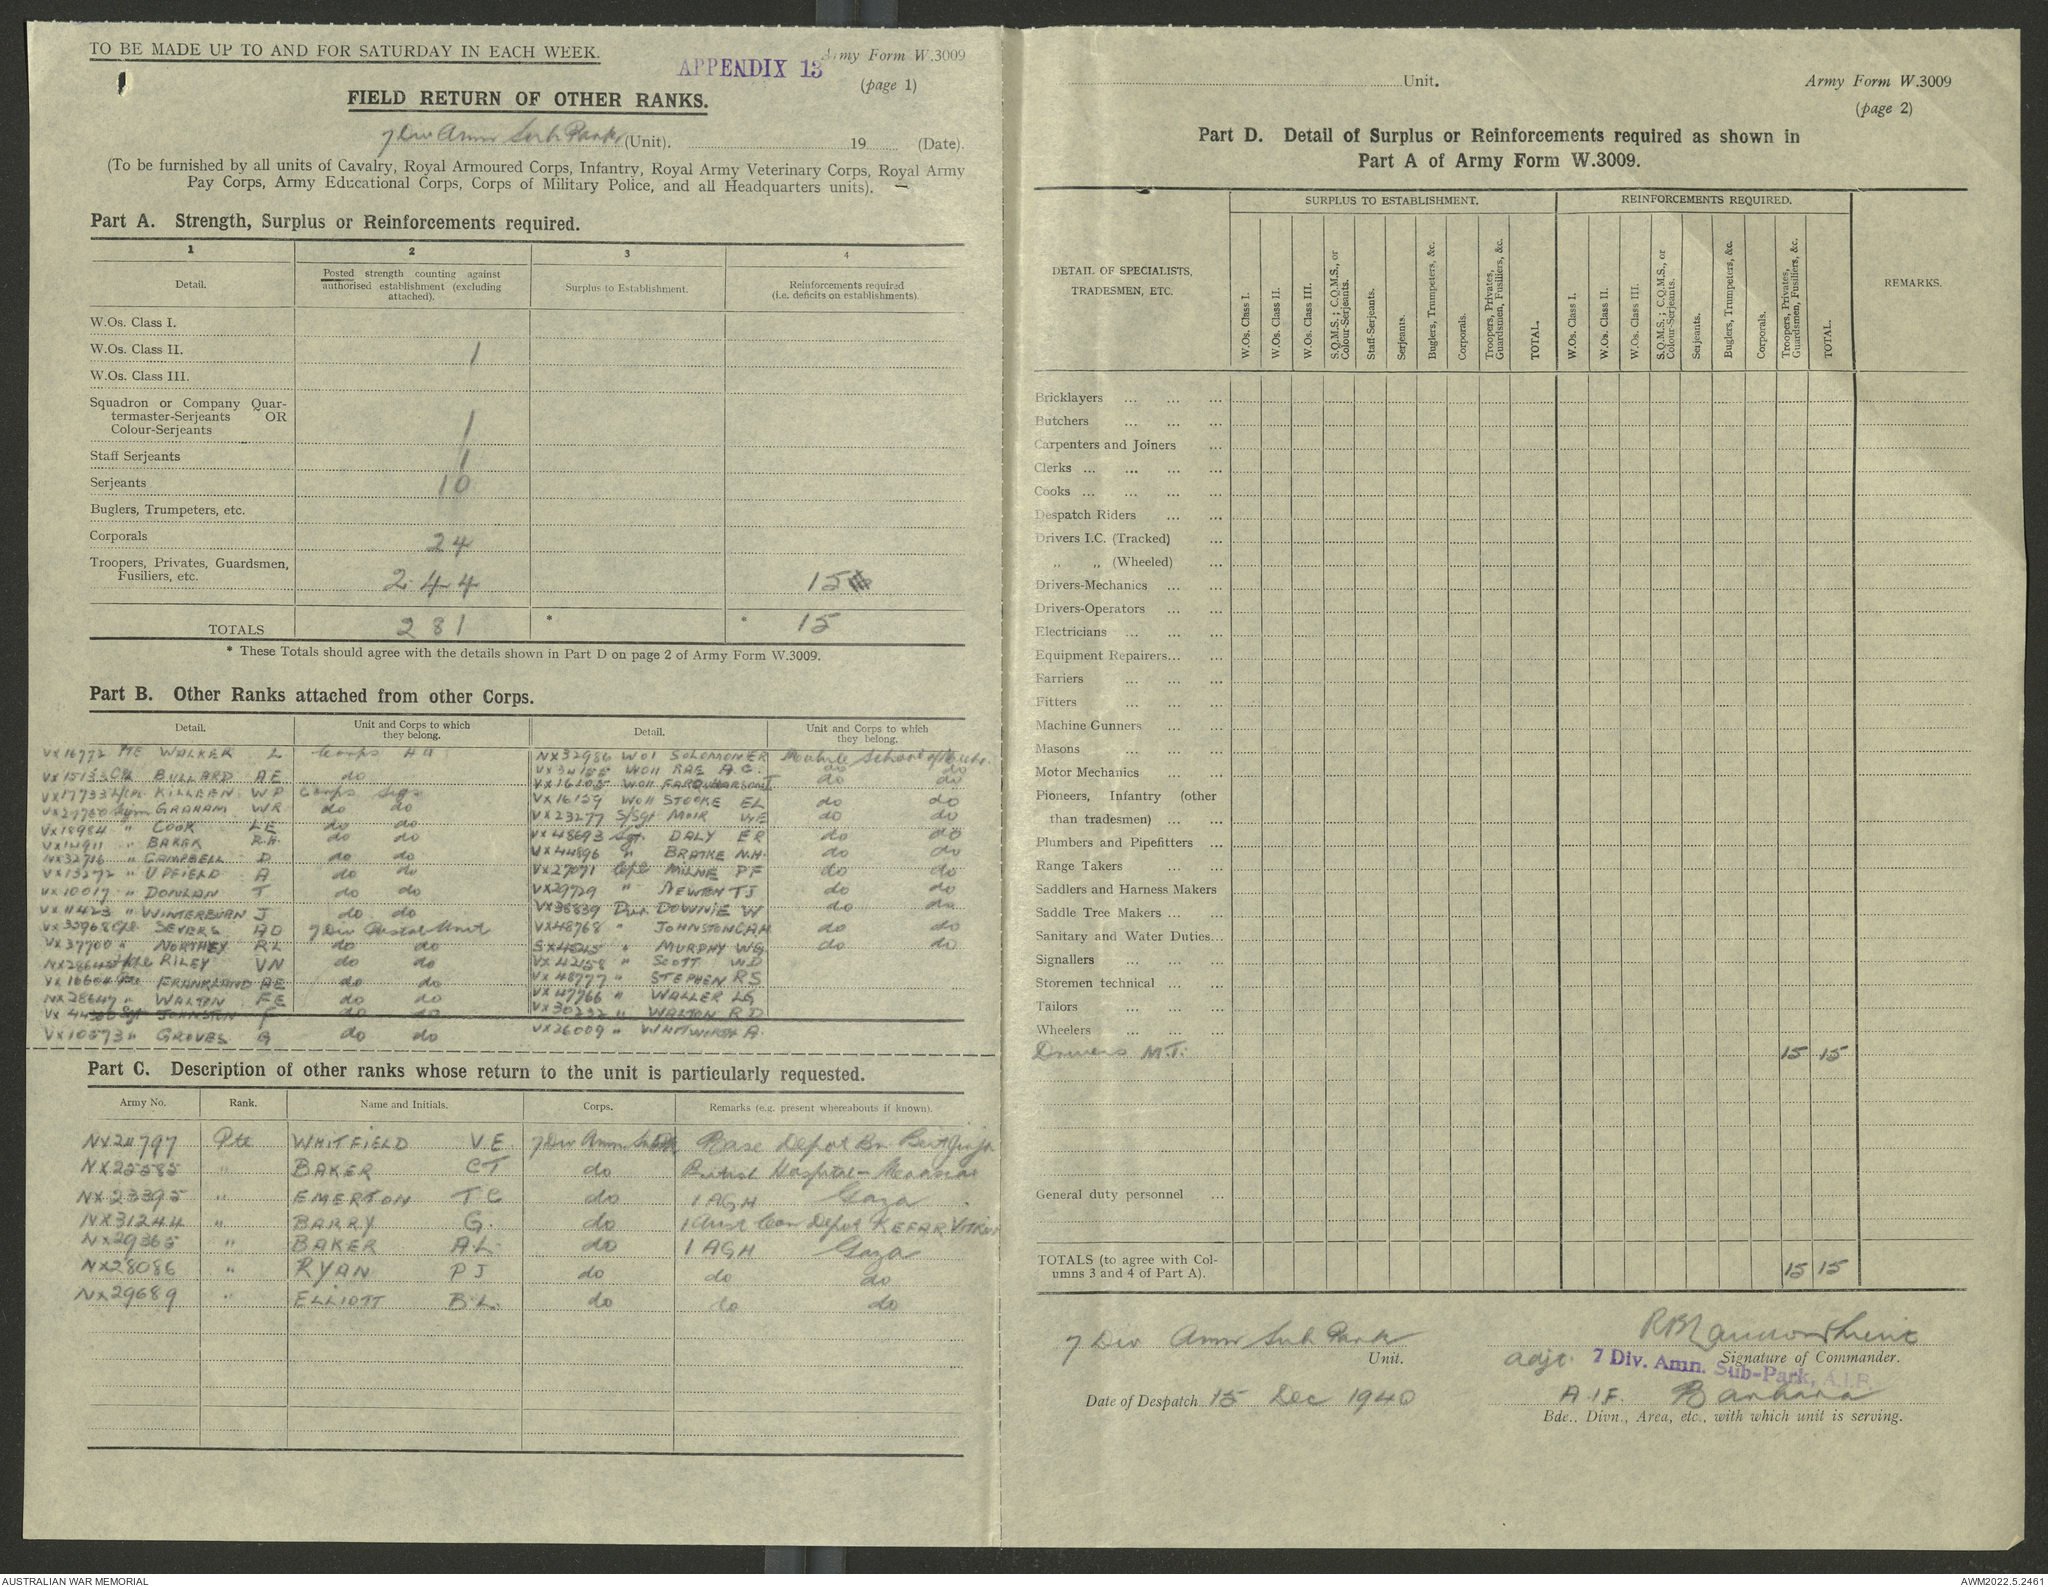 TO BE MADE UP TO AND FOR SATURDAY IN EACH WEEK.
Army Form W.3009
APPENDIX 13
(page 1)
1
FIELD RETURN OF OTHER RANKS.
7 Div Amn Sub Park (Unit). 19 (Date).
(To be furnished by all units of Cavalry, Royal Armoured Corps, Infantry, Royal Army Veterinary Corps, Royal Army
Pay Corps, Army Educational Corps, Corps of Military Police, and all Headquarters units).
Part A. Strength, Surplus or Reinforcements required.
1 2 3 4
Detail. Posted strength counting against authorised establishment (excluding attached). Surplus to Establishment. Reinforcements required (i.e. deficits on establishments).
W.Os. Class I.
W.Os. Class II. 1
W.Os. Class III.
Squadron or Company Quar-
termaster-Serjeants OR
Colour-Serjeants 1
Staff Serjeants 1
Serjeants 10
Buglers, Trumpeters, etc.
Corporals 24
Troopers, Privates, Guardsmen,
Fusiliers, etc. 244 15
TOTALS 281 * * 15
* These Totals should agree with the details shown in Part D on page 2 of Army Form W.3009.
Part B. Other Ranks attached from other Corps.
Detail. Unit and Corps to which they belong. Detail. Unit and Corps to which they belong.
VX16772 Pte WALKER L Corps HQ
VX15133 Cpl BULLARD AE do
VX17733 L/Cpl KILLEEN WP Corps Sigs
VX27750 Sigm GRAHAM WR do do
VX18984 " COOK LE do do
VX14911 " BAKER R.H. do do
NX32716 " CAMPBELL D do do
VX13272 " UPFIELD A do do
VX10017 " DONLAN T do do
VX11423 " WINTERBURN J do do
VX33968 Cpl SEVERS AD 7 Div Postal Unit
VX37700 " NORTHEY RL do do
NX28645 RILEY VN do do
VX16604 FRANKLAND AE do do
NX28647 " WALTON FE do do
Sgt JOHNSTON F do do
VX10573 " GROVES G do do
NX32986 WO1 SOLOMON ER Mobile School
VX34155 WO11 RAE A.G. do do
VX16105 WO11 FARQUHARSON I do do
VX16159 WO11 STOOKE EL do do
VX23277 S/Sgt MOIR WE do do
VX48693 Sgt. DALY ER do do
VX44896 " BRATKE N.H. do do
VX27071 Cpl MILNE PF do do
VX29729 " NEWTON TJ do do
VX38839 Dvr DOWNIE W do do
VX48768 " JOHNSTON CAH do do
SX4545 " MURPHY WG do do
VX42158 " SCOTT WD
VX48777 " STEPHEN RS
VX47766 " WALLER LG
VX30232 " WALTON RD
VX26009 " WHITWORTH A.
Part C. Description of other ranks whose return to the unit is particularly requested.
Army No. Rank. Name and Initials. Corps. Remarks (e.g. present whereabouts if known).
NX24797 Pte WHITFIELD V.E. 7 Div Amn Sub Pk Base Depot Bn Beit Jirja
NX25585 " BAKER CT do British Hospital -
NX23395 " EMERTON T C do 1 AGH Gaza
NX31244 " BARRY G. do 1 Aust Con Depot KEFAR VITKIN
NX29365 " BAKER A.L. do 1 AGH Gaza
NX28086 " RYAN P J do do do
NX29689 " ELLIOTT B.L. do do do
Unit.
Army Form W.3009
(page 2)
Part D. Detail of Surplus or Reinforcements required as shown in
Part A of Army Form W.3009.
SURPLUS TO ESTABLISHMENT. REINFORCEMENTS REQUIRED.
DETAIL OF SPECIALISTS, TRADESMEN, ETC.
W.Os. Class I. W.Os. Class II. W.Os. Class III. S.Q.M.S.; C.Q.M.S., or Colour-Serjeants. Staff-Serjeants. Serjeants. Buglers, Trumpeters, &c. Corporals. Troopers, Privates, Guardsmen, Fusiliers, &c. TOTAL.
W.Os. Class I. W.Os. Class II. W.Os. Class III. S.Q.M.S.; C.Q.M.S., or Colour-Serjeants. Serjeants. Buglers, Trumpeters, &c. Corporals. Troopers, Privates, Guardsmen, Fusiliers, &c. TOTAL.
REMARKS.
Bricklayers
Butchers
Carpenters and Joiners
Clerks
Cooks
Despatch Riders
Drivers I.C. (Tracked)
" " (Wheeled)
Drivers-Mechanics
Drivers-Operators
Electricians
Equipment Repairers
Farriers
Fitters
Machine Gunners
Masons
Motor Mechanics
Pioneers, Infantry (other
than tradesmen)
Plumbers and Pipefitters
Range Takers
Saddlers and Harness Makers
Saddle Tree Makers
Sanitary and Water Duties
Signallers
Storemen technical
Tailors
Wheelers
Drivers M.T. 15 15
General duty personnel
TOTALS (to agree with Col-
umns 3 and 4 of Part A). 15 15
7 Div Amn Sub Park
Unit.
Signature of Commander.
adjt. 7 Div. Amn. Sub-Park, A.I.F.
Date of Despatch 15 Dec 1940
A.I.F. Barbara
Bde., Divn., Area, etc., with which unit is serving.
AUSTRALIAN WAR MEMORIAL
AWM2022.5.2461